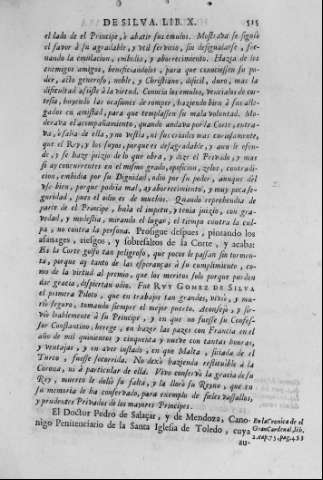 DE SILVA. LIB. X. 515
el lado de el Principe, ò abatir sus emulos. Mostrava se siguiò
el favor à su agradable, y util servicio, sin desigualarse, for-
nando la emulacion, embidia, y aborrecimiento. Hazia de los
enemigos amigos, beneficiandolos, para que conociessen su po-
der, acto generoso, noble, y Christiano, dificil, duro, mas la
dificultad assiste à la virtud. Conocia los emulos, vencialos de cor-
tesia, huyendo las ocasiones de romper, haziendo bien à sus alle-
gados en amistad, para que templassen su mala voluntad. Mo-
derava el acompañamiento, quando andava por la Corte, entra-
va, ò salia de ella, y no vestia, ni sus criados mas curiosamente,
que el Rey, y los suyos, porque es desagradable, y aun le ofen-
de, y se haze juizio de lo que obra, y dize el Privado, y mas
si ay concurrentes en el mismo grado, oposicion, zelos, contradi-
cion, embidia por su Dignidad, odio por su poder, aunque dèl
use bien, porque podria mal, ay aborrecimiento, y muy poca se-
guridad, pues el odio es de muchos. Quando reprehendia de
parte de el Principe, hàla el impetu, y tenia juizio, con gra-
vedad, y molestia, mirando el lugar, el tiempo contra la cul-
pa, no contra la persona. Prosigue despues, pintando los
afanages, riesgos, y sobresaltos de la Corte, y acaba:
Es la Corte golfo tan peligroso, que pocos le passan sin tormen-
ta, porque ay tanto de las esperanças à su cumplimiento, co-
mo de la virtud al premio, que los meritos solo porque pueden
dar gracia, despiertan odio. Fue RUY GOMEZ DE SILVA
el primera Piloto, que en trabajo tan grandes, viviò, y mu-
riò seguro, tomando siempre el mejor puerto. Aconsejò, y sir-
viò loablemente à su Principe, y en que no fuesse su Confes-
sor Constantino, herege, en hazer las pazes con Francia en el
año de mil quinientos y cinquenta y nueve con tantas honras,
y ventajas, y en aver instado, en que Malta, sitiada de el
Turco, fuesse socorrida. No dexò haziendo restituible à la
Corona, ni à particular de ella. Vivo conservò la gracia de su
Rey, muerto le doliò su falta, y la llorò su Reyno, que en
su memoria le ha conservado, para exemplo de fieles vassallos,
y prudentes Privados de los mayores Principes.
El Doctor Pedro de Salaçar, y de Mendoza, Cano-
nigo Penitenciario de la Santa Iglesia de Toledo, cuya
au-
En la Cronica de el
Gran Cardenal, lib.
2. cap. 75. pag. 433